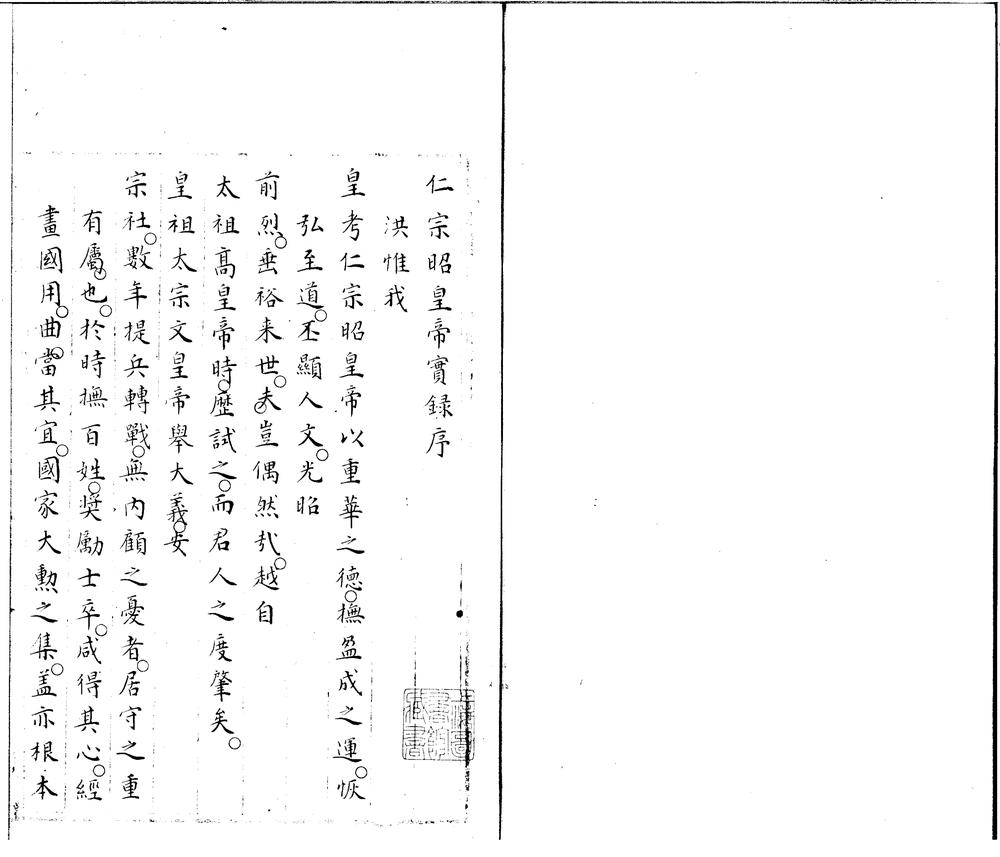 仁宗昭皇帝實録序
洪惟我
皇考仁宗昭皇帝以重華之德。撫盈成之運。恢
弘至道。丕顯人文。光昭
前烈。垂裕来世。夫。豈偶然㢤。越自
太祖髙皇帝時。歷試之。而君人之度肇矣。
皇祖太宗文皇帝舉大義。安
宗社。數年提兵轉戰。無内顧之憂者。居守之重
有屬。也。於時撫百姓。奨勵士卒。咸得其心。經
畫國用。曲。當其宜。國家大勲之集。盖亦根本